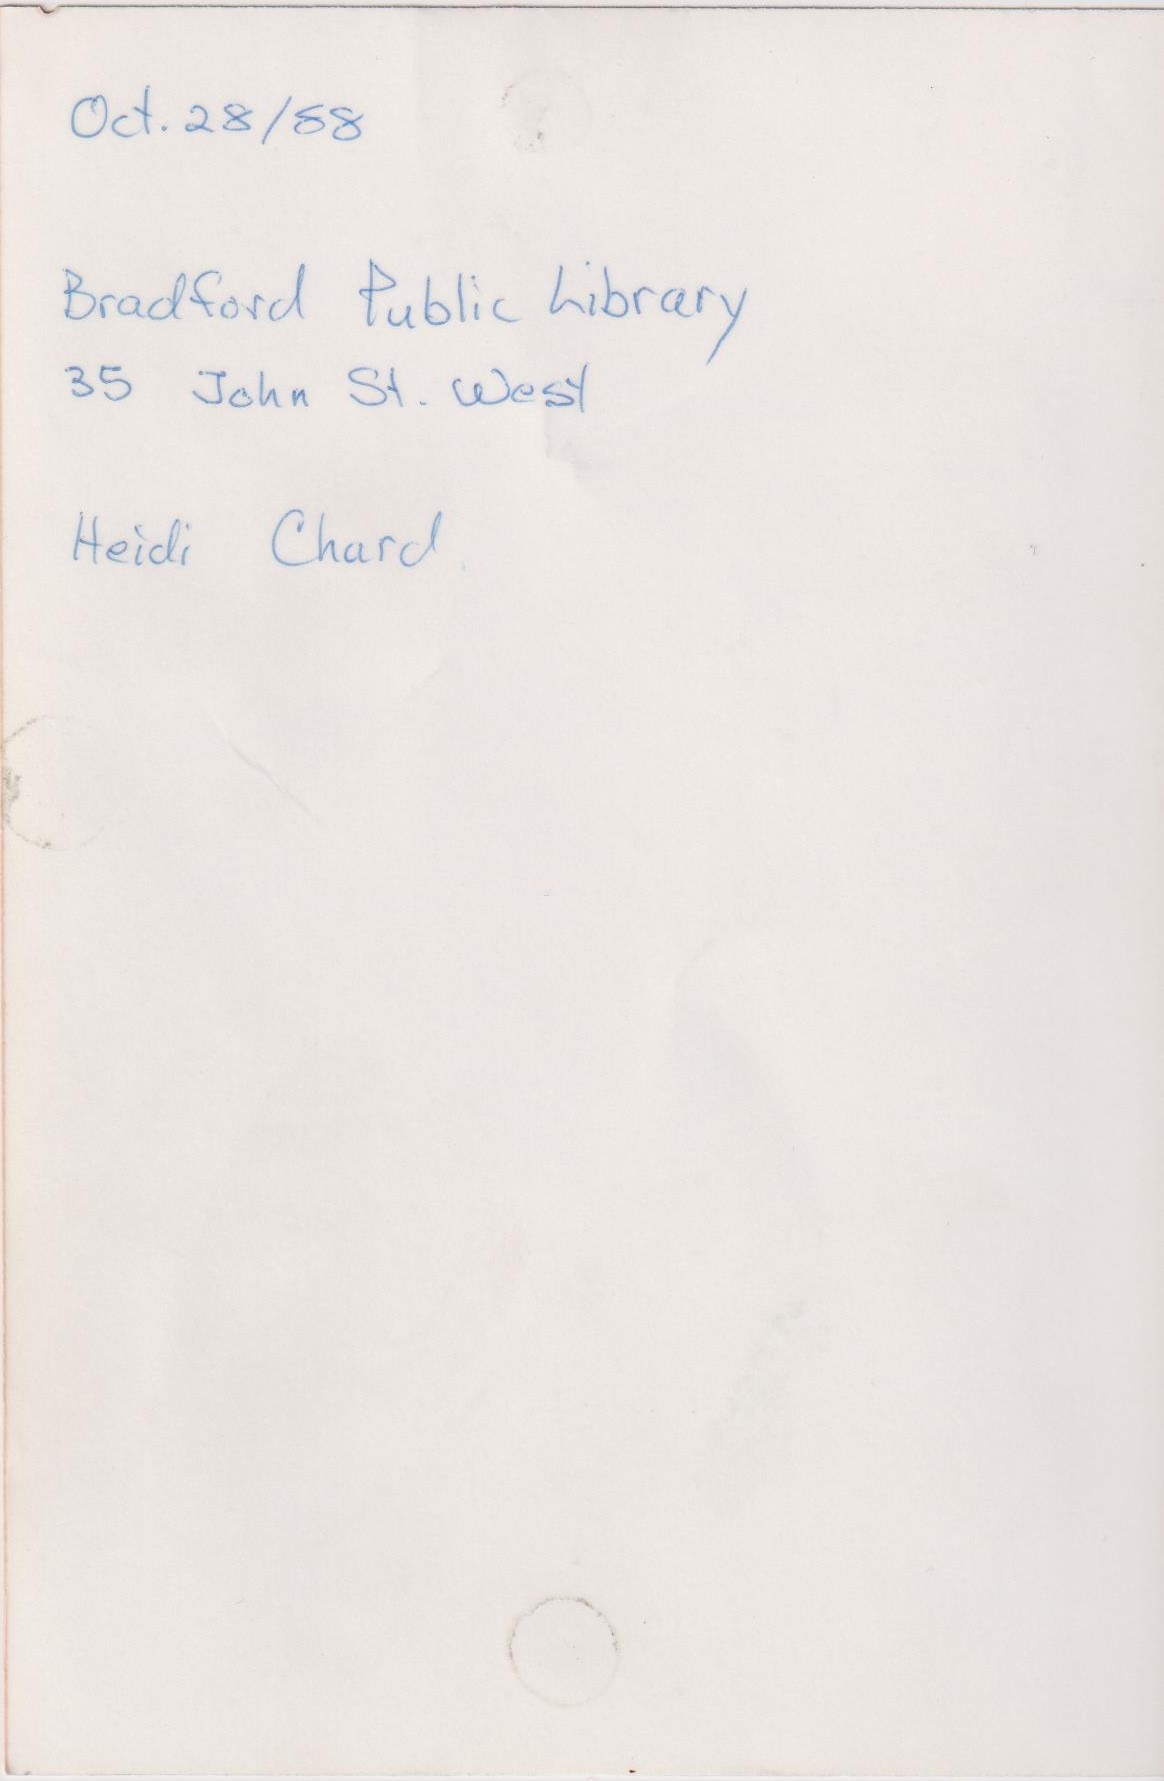 Oct. 28/88
Bradford Public Library
35 John St. West
Heidi Chard